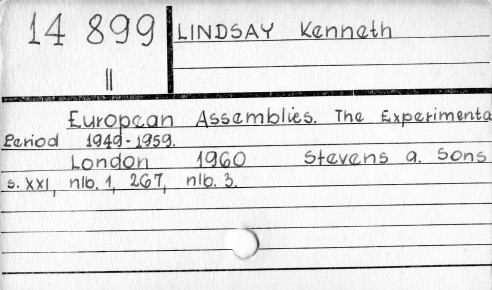 14 899
LINDSAY Kenneth
II
European Assemblies. The Experimenta
Period 1949-1959.
London 1960 Stevens a. Sons
s. XXI, nlb. 1, 267, nlb. 3.